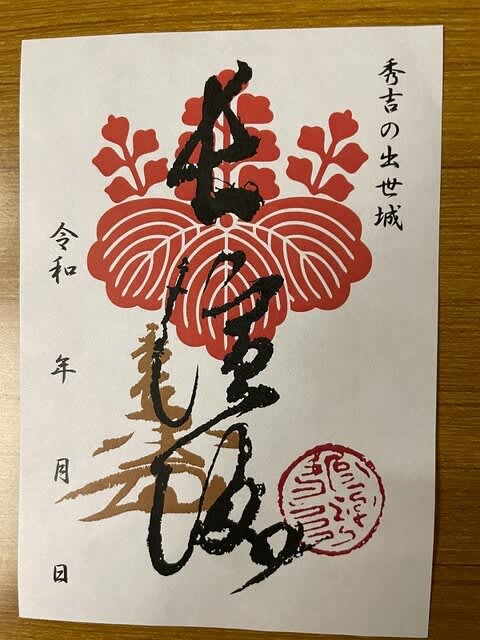 秀吉の出世城
長濱城
令和　年　月　日